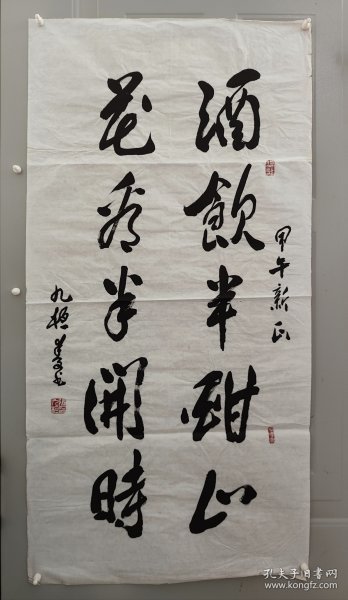 酒飲半酣心
花看半開時
甲午新正
孔夫子旧书网
www.kongfz.com